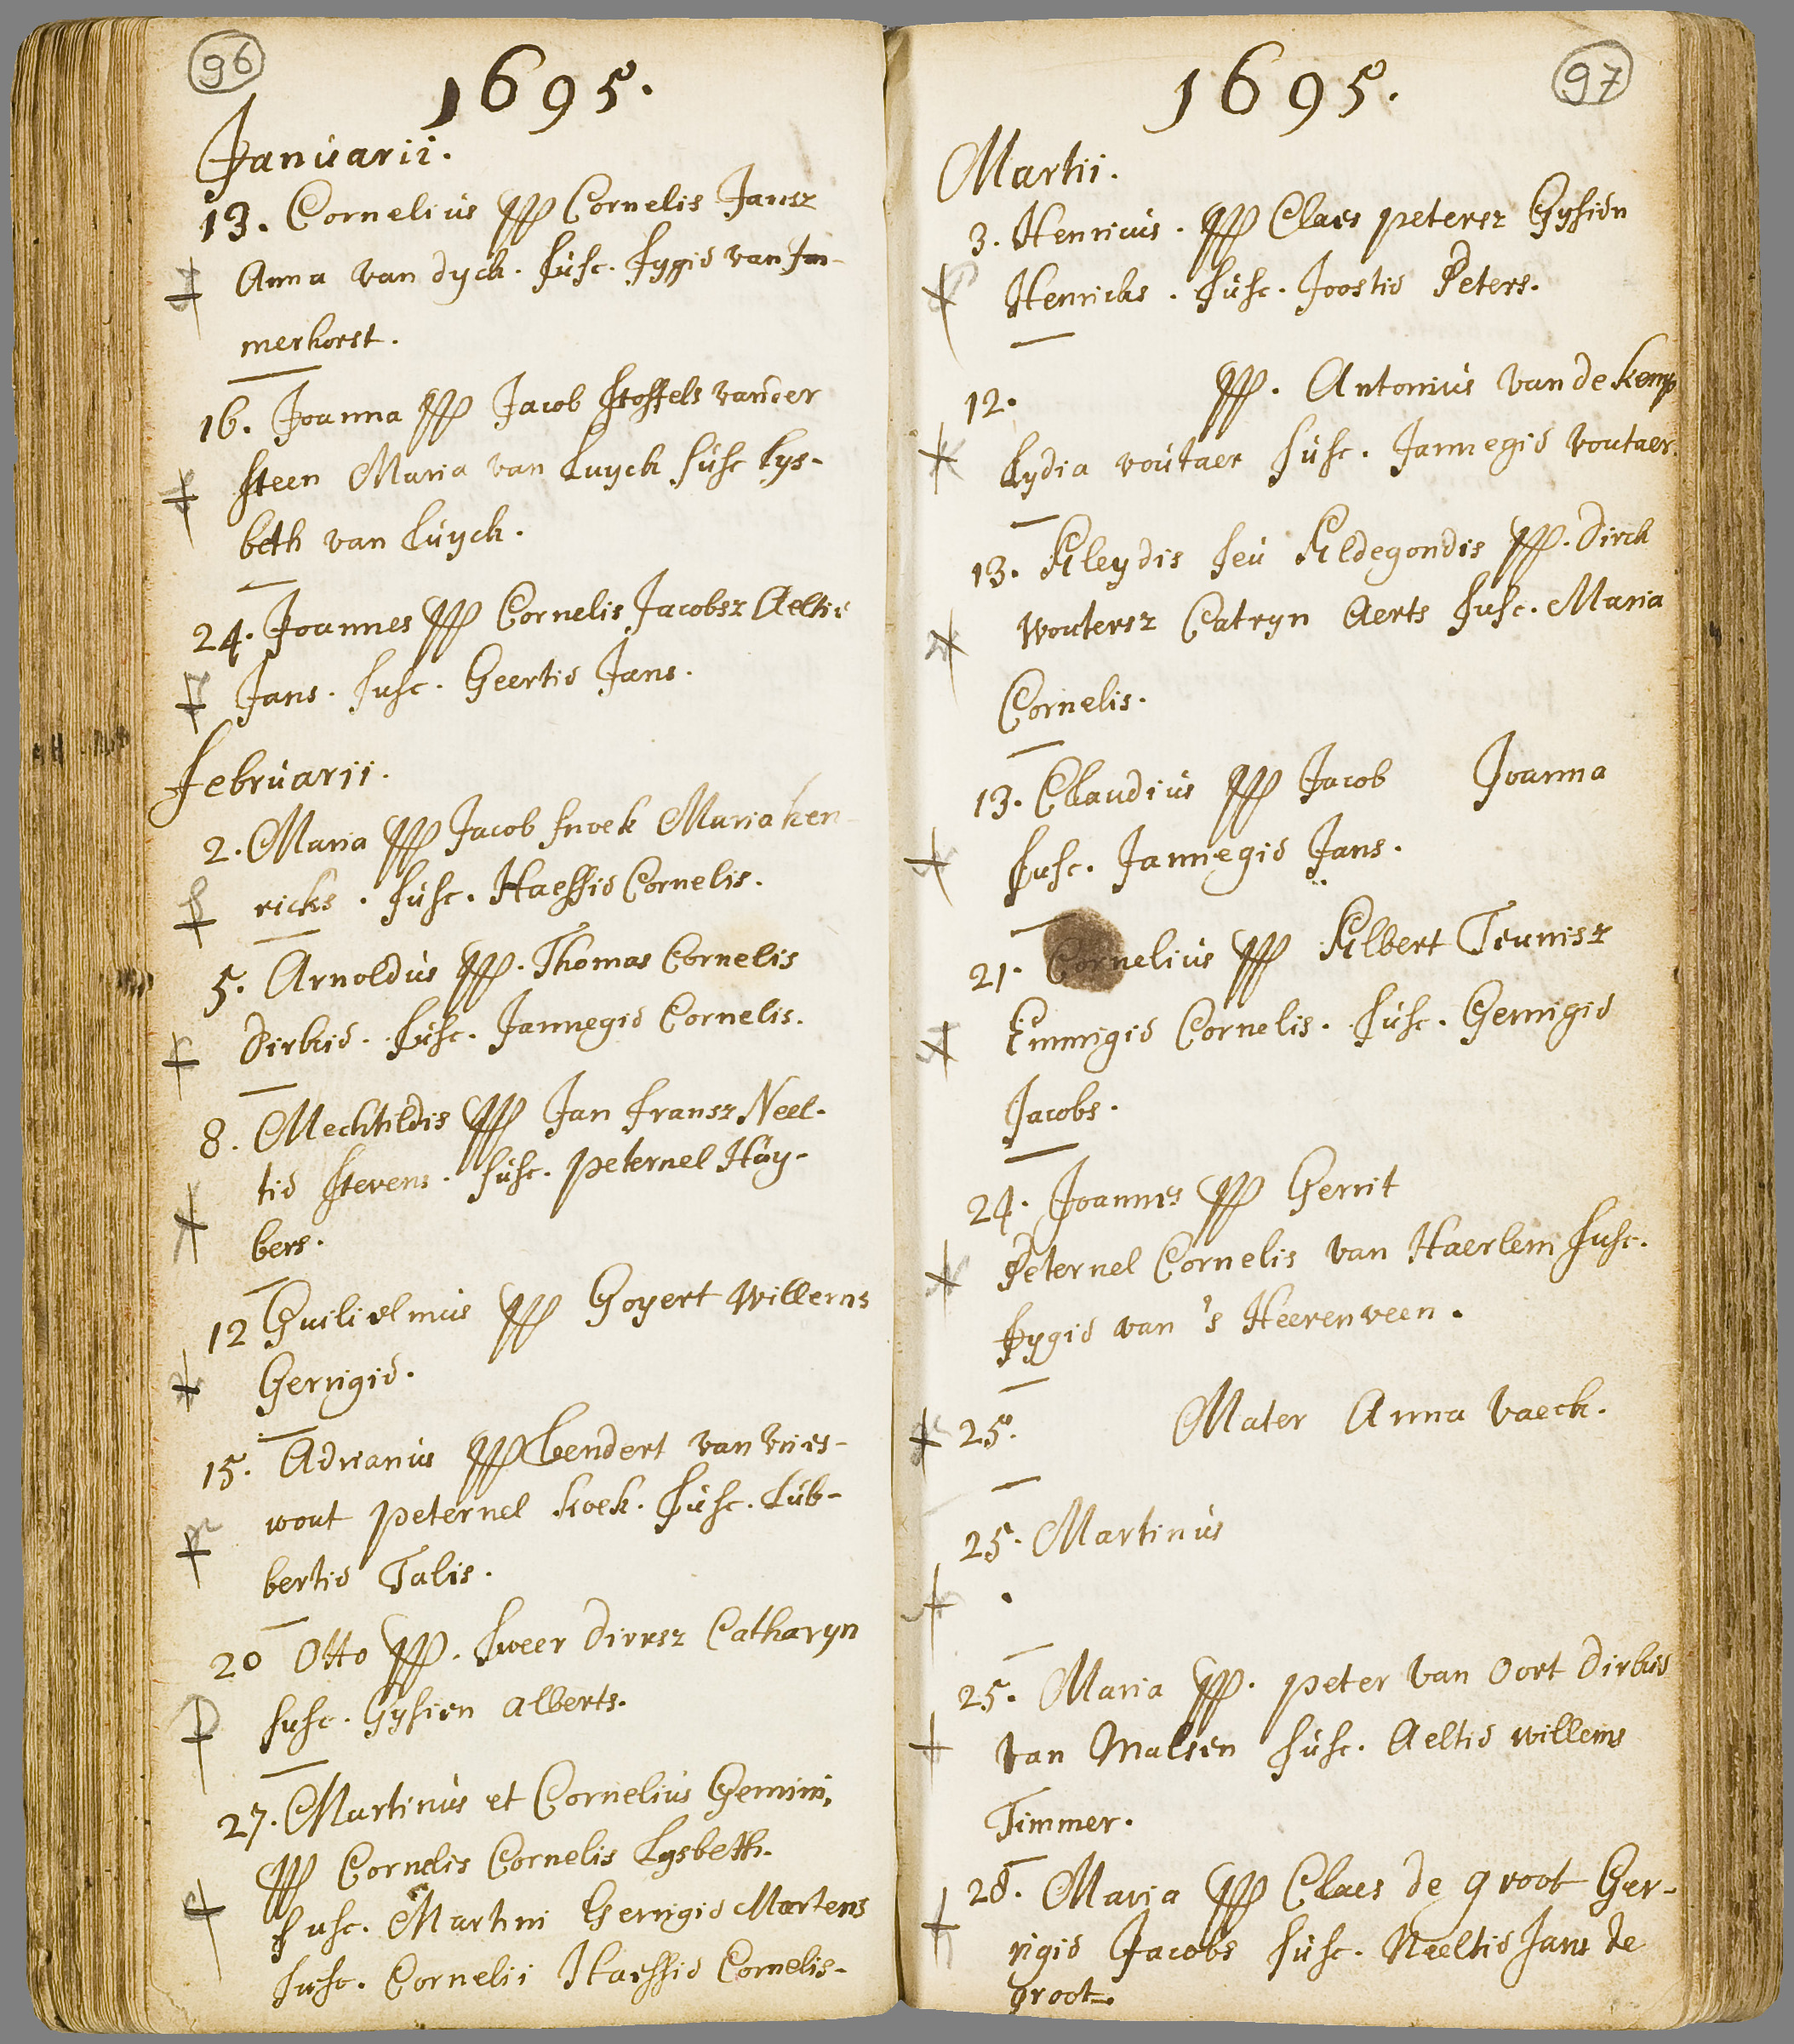 96
1695.
Januarii.
13. Cornelius PP Cornelis Jansz
Anna van dyck. Susc. Fygie van Im-
merhorst.
16. Joanna PP Jacob Stoffels vander
Steen Maria van Luyck Susc Lys-
beth van Luyck.
24. Joannes PP Cornelis Jacobsz Aeltie
Jans. Susc. Geertie Jans.
Februarii.
2. Maria PP Jacob Snoek Maria hen-
ricks. Susc. Haessie Cornelis.
5. Arnoldus PP. Thomas Cornelis
Dirkie. Susc. Jannegie Cornelis.
8. Mechtildis PP Jan fransz Neel-
tie Stevens. Susc. peternel Huy-
bers.
12 Guilielmus PP Goyert Willems
Gerrigie.
15. Adrianus PP Lendert van vries-
wout peternel Koek. Susc. Lub-
bertie Talis.
20 Otto PP. Sweer Dircksz Catharyn
Susc. Gysien alberts.
27. Martinus et Cornelius Gemini,
PP Cornelis Cornelis Lysbeth.
Susc. Martini Gerrigie Martens
Susc. Cornelii Haessie Cornelis.
97
1695.
Martii.
3. Henricus. PP Claes petersz Gysien
Henricks. Susc. Joostie Peters.
12. PP. Antonius van de Kemp
Lydia voutaer Susc. Jannegie voutaer.
13. Aleydis seu Aldegondis PP. Dirck
Woutersz Catryn Aerts Susc. Maria
Cornelis.
13. Claudius PP Jacob Joanna
Susc. Jannegie Jans.
21. Cornelius PP Albert Teunisz
Emmigie Cornelis. Susc. Gerrigie
Jacobs.
24. Joannes PP Gerrit
Peternel Cornelis van Haerlem Susc.
Fygie van 's Heerenveen.
25. Mater Anna vaeck.
25. Martinus
25. Maria PP. peter van Oort Dirkie
van Malsen Susc. Aeltie willems
Timmer.
28. Maria PP Claes de groot Ger-
rigie Jacobs Susc. Neeltie Jans de
groot.